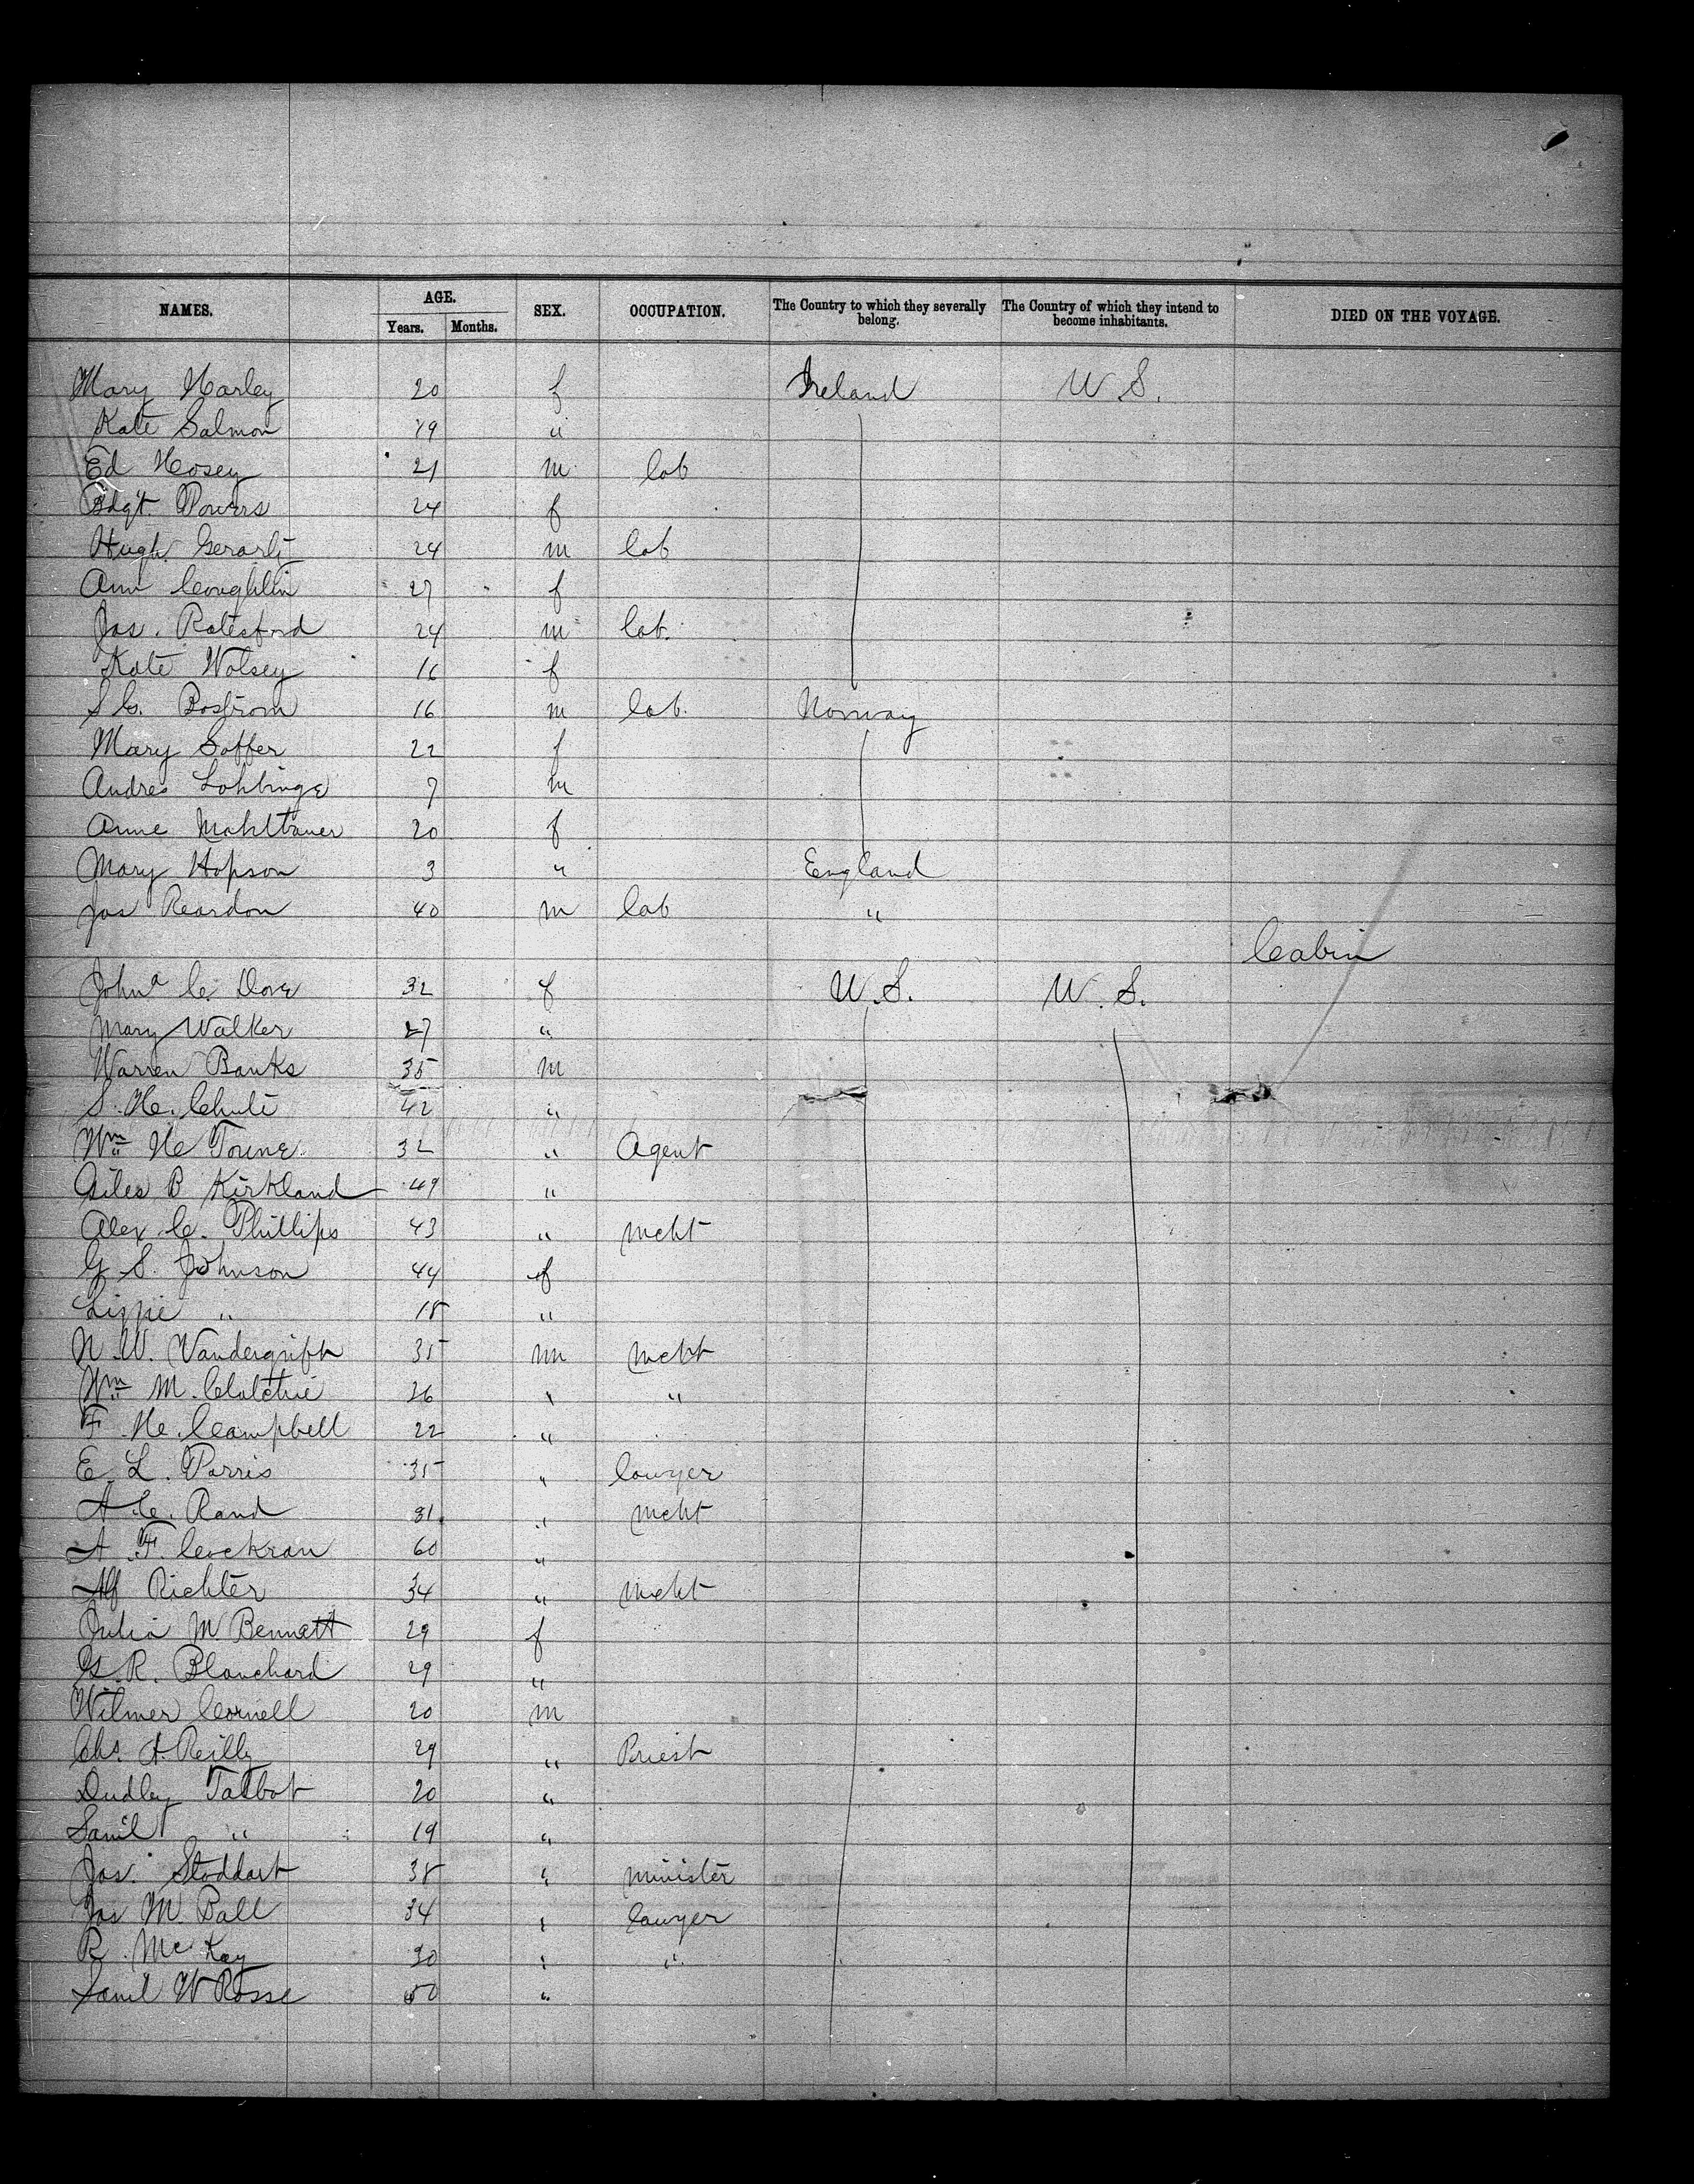 NAMES. AGE. SEX. OCCUPATION. The Country to which they severally belong. The Country of which they intend to become inhabitants. DIED ON THE VOYAGE.
Years. Months.
Mary Harley 20 f Ireland U.S.
Kate Salmon 19 "
Ed Hosey 21 m lab
Bdgt Powers 24 f
Hugh 24 m lab
Ann Coughlin 27 f
Jas. Ratesford 24 m lab.
Kate Wolsey 16 f
S C. Bostrom 16 m lab. Norway
Mary Soffer 22 f
Andres Lohbinge 7 m
Anne Mahltauer 20 f
Mary Hopson 3 " England
Jas Reardon 40 m lab "
Cabin
Johna C. Dove 32 f U.S. U.S.
Mary Walker 27 "
Warren Banks 35 m
S. H. Chute 42 "
Wm H Towne 32 " Agent
Giles B Kirkland 49 "
Alex C. Phillips 43 " mcht
G S. Johnson 44 f
Lizzie " 18 "
N. W. Vandergrift 35 m mcht
Wm M. 26 " "
F. H. Campbell 22 "
E. L. Parris 35 " lawyer
A C. Rand 31 " mcht
A. F. Cockran 60 "
Alf Richter 34 " mcht
Julia M. Bennett 29 f
G. R. Blanchard 29 "
Wilmer Cornell 20 m
Chs. A Reilly 29 " Priest
Dudley Talbot 20 "
Saml " 19 "
Jas. Stoddart 38 " minister
Jas M. Ball 34 " lawyer
R. McKay 30 " "
Saml W Rosse 50 "